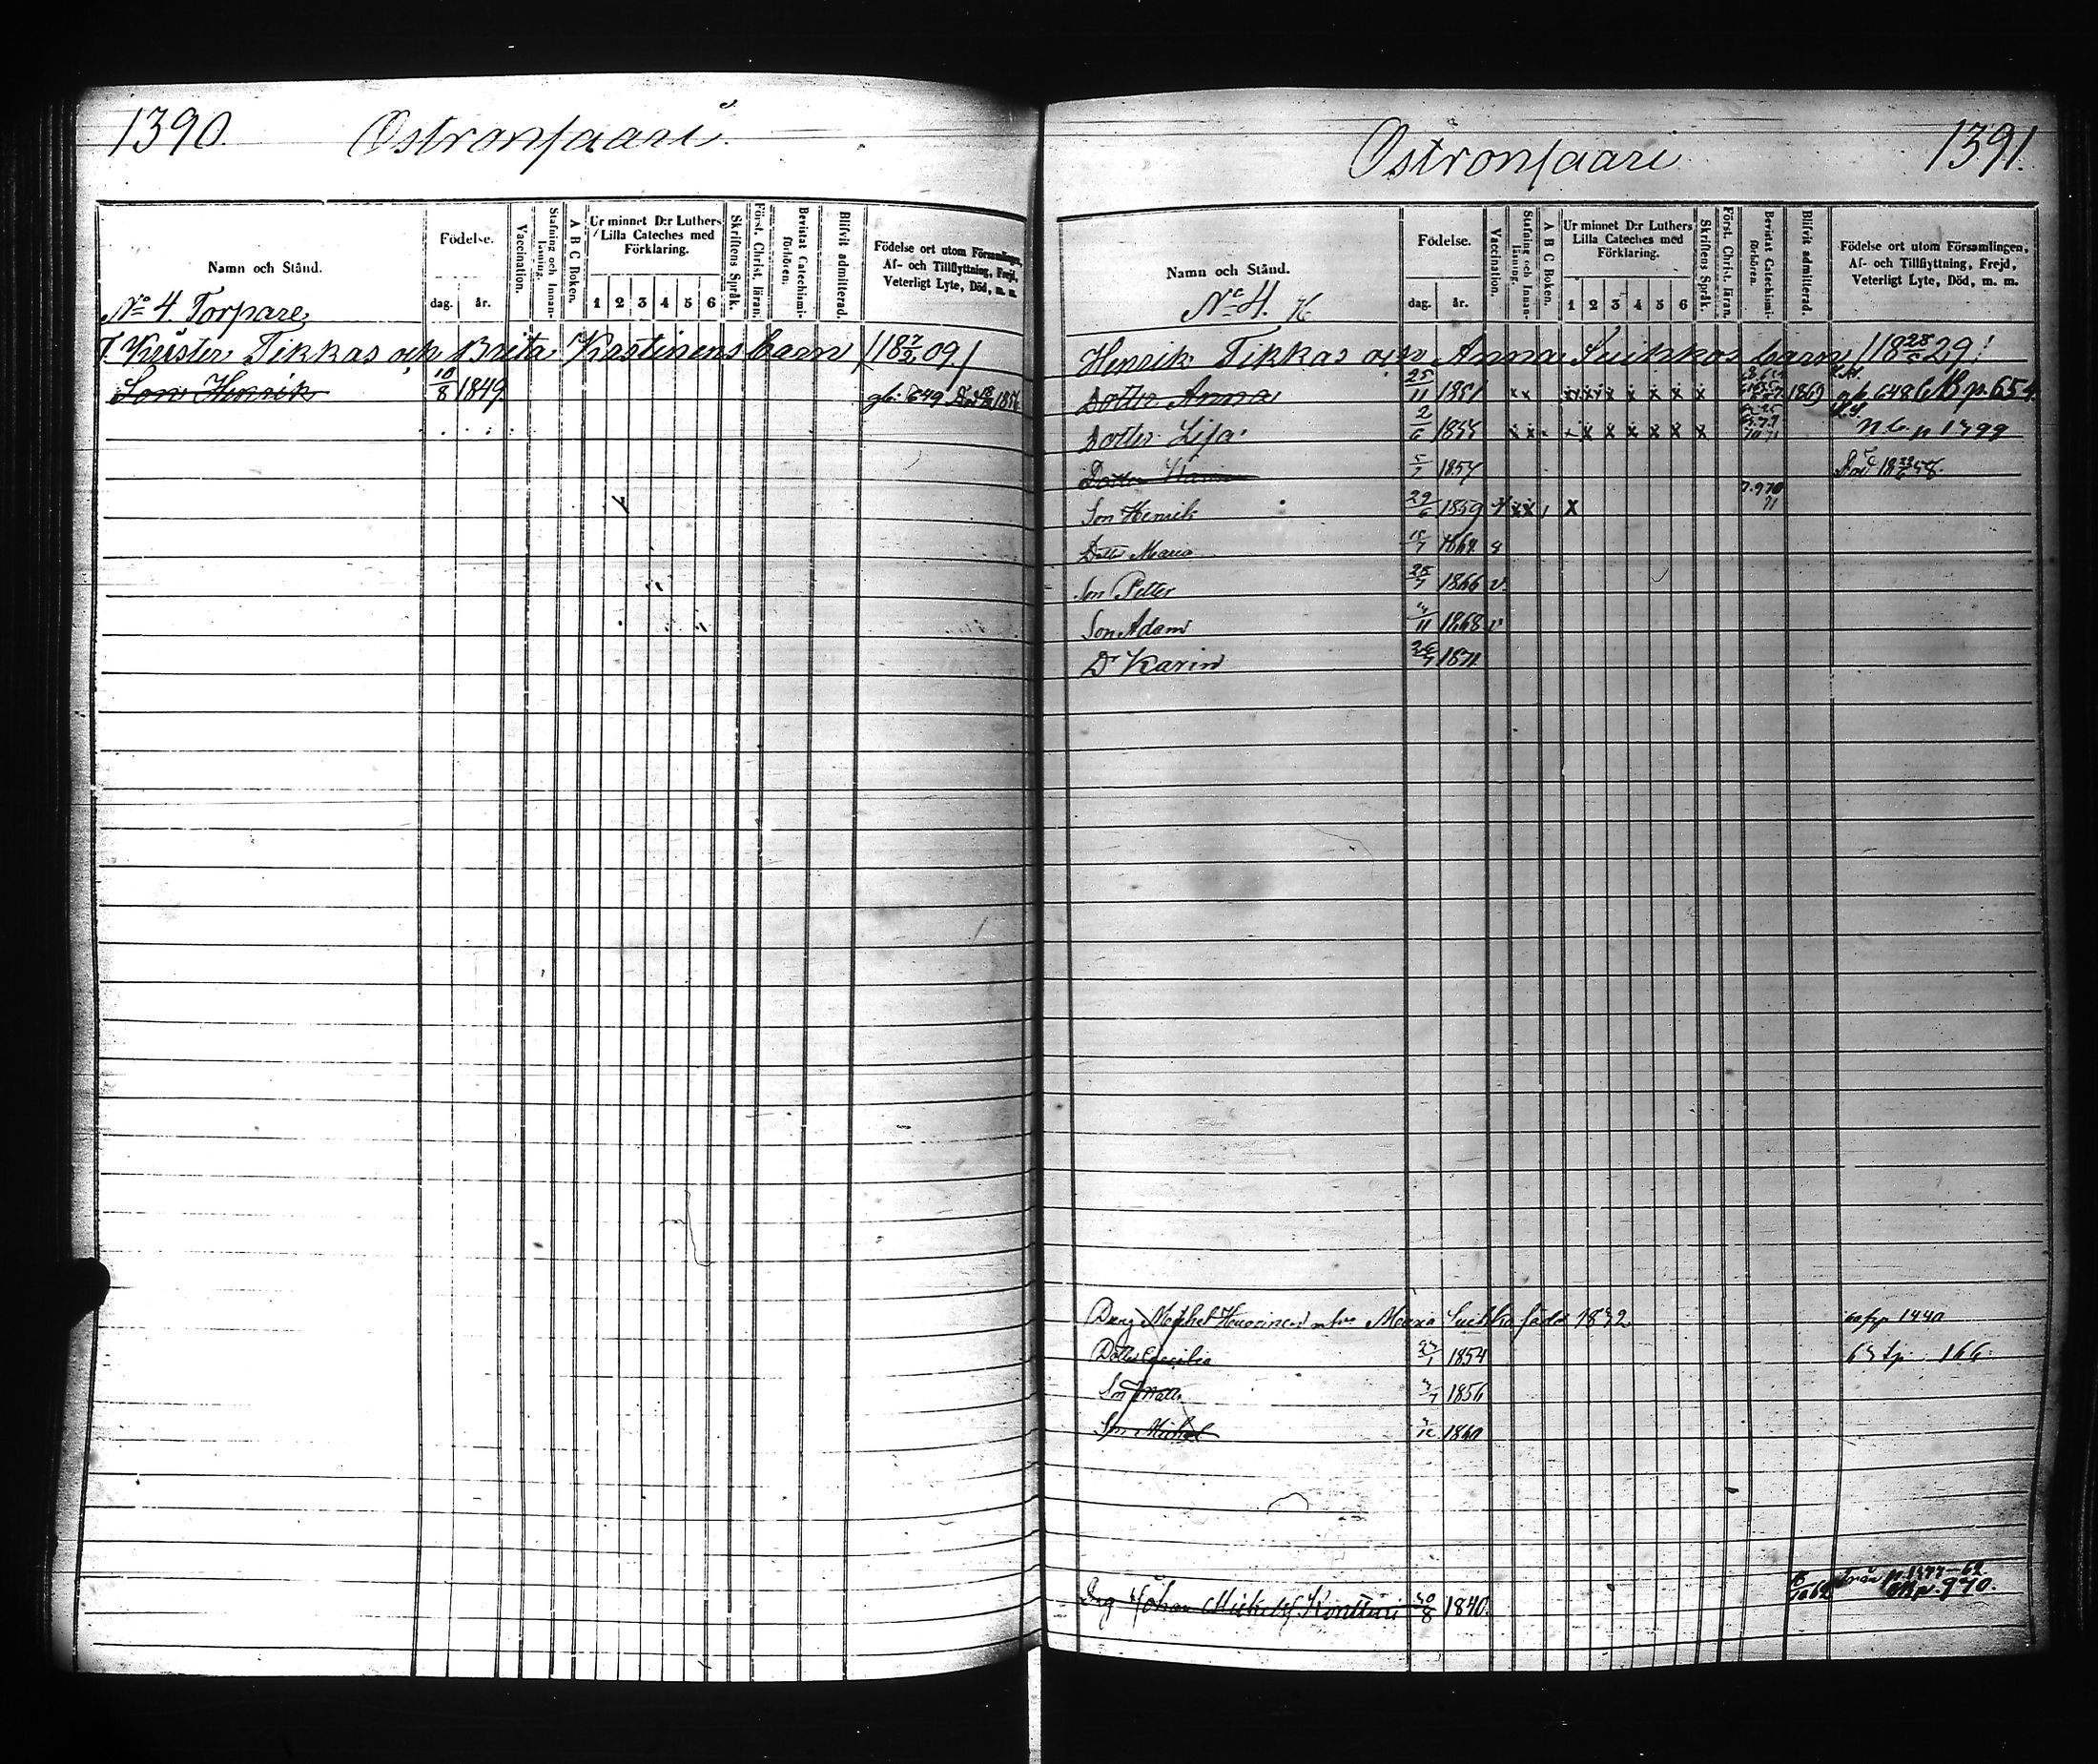 1390. Ostronsaari
Namn och Stånd.
Födelse.
dag. år.
Vaccination.
Stafning och Innan-läsning.
A B C Boken.
Ur minnet D:r Luthers Lilla Cateches med Förklaring.
1 2 3 4 5 6
Skriftens Språk.
Först. Christ. läran.
Bevistat Catechismi-förhören.
Blifvit admitterad.
Födelse ort utom Församlingen, Af- och Tillflyttning, Frejd, Veterligt Lyte, Död, m. m.
No 4 Torpare
T. Krister Tikkas och Brita Kostinens barn
Son Henrik 10/8 1849
Ostronsaari 1391.
Namn och Stånd.
No 4.
Födelse.
dag. år.
Vaccination.
Stafning och Innan-läsning.
A B C Boken.
Ur minnet D:r Luthers Lilla Cateches med Förklaring.
1 2 3 4 5 6
Skriftens Språk.
Först. Christ. läran.
Bevistat Catechismi-förhören.
Blifvit admitterad.
Födelse ort utom Församlingen, Af- och Tillflyttning, Frejd, Veterligt Lyte, Död, m. m.
Henrik Tikkas och Anna Suikkos barn
Dotter Anna 25/11 1851 x x x x x x x x x 1869 p. 654.
Dotter Lisa 2/6 1855 x x x x x x x x x p 1399
Dotter 1857 Död
Son Henrik 29/6 1859 x x x 71
Dotter Maria 1864
Son Petter 28/7 1866 v.
Son Adam 11 1868 v
D Karin 1871
Dräng Michel Maria Suikko född 1832 1440
Dotter Cecilia 1854 166
Son Matts 1856
Son Michel 1860
Drg Johan Michelss Kontturi 20/8 1840. p. 970.